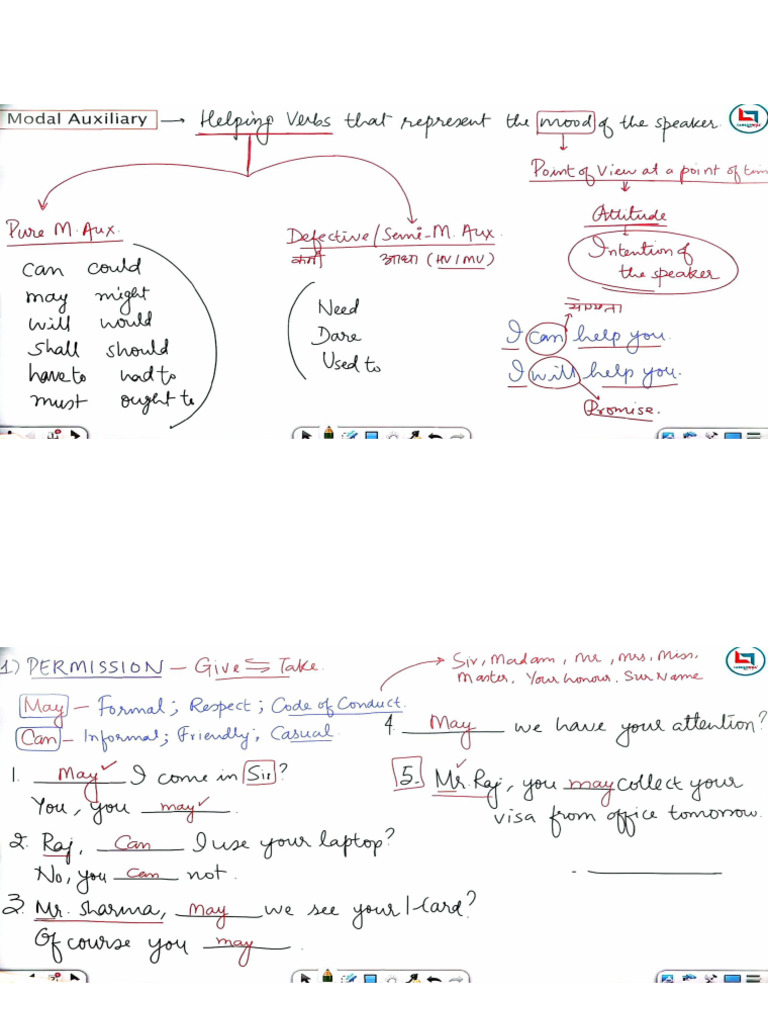 Modal Auxiliary → Helping Verbs that represent the mood of the speaker.
Point of View at a point of tim
Attitude
Intention of
the speaker
Pure M. Aux.
can could
may might
will would
shall should
have to had to
must ought to
Defective/Semi-M. Aux
कमी आधा (HV/MV)
Need
Dare
Used to
I can help you.
I will help you.
Promise.
1) PERMISSION – Give ⇆ Take.
May – Formal; Respect; Code of Conduct.
Can – Informal; Friendly; Casual.
Sir, Madam, Mr, Mrs. Miss.
Master, Your honour, Sur Name
1. May ✓ I come in Sir?
You, you may ✓.
2. Raj, Can I use your laptop?
No, you can not.
3. Mr. Sharma, may we see your I-Card?
Of course you may.
4. May we have your attention?
5. Mr. Raj, you may collect your
visa from office tomorrow.